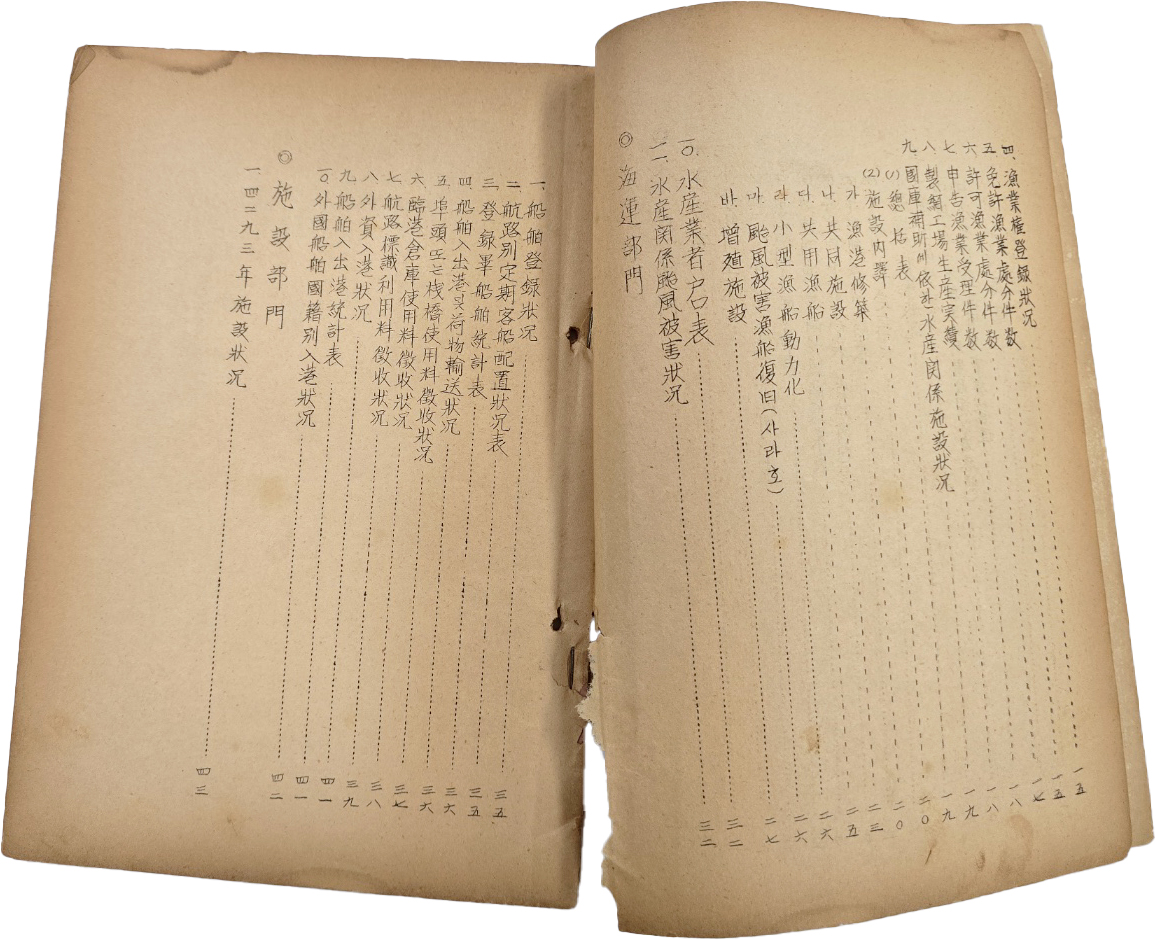 四. 漁業權登録狀况 一五
五 免許漁業處分件数 一五
六. 許可漁業處分件数 一七
七 申告漁業受理件数 一八
八 製網工場生産実績 一八
九. 國庫補助에依한水産関係施設狀况 一九
(1) 總括表 一九
(2) 施設內譯 二〇
가. 漁港修築 二〇
나. 共同施設 二三
다. 共用漁船 二五
라. 小型漁船動力化 二六
마. 颱風被害漁船復旧(사라호) 二六
바. 増殖施設 二七
一〇. 水産業者名表 三二
一一. 水産関係颱風被害狀况 三二
◎ 海運部門
一. 船舶登録狀况 三五
二. 航路别定期客船配置狀况表 三五
三. 登録畢船舶統計表 三六
四. 船舶入出港및荷物輸送狀况 三六
五. 埠頭또는棧橋使用料徵收狀况 三七
六. 臨港倉庫使用料徵收狀况 三八
七. 航路標識利用料徵收狀况 三九
八. 外資入港狀况 四一
九. 船舶入出港統計表 四一
一〇. 外國船舶國籍别入港狀况 四二
◎ 施設部門
一. 四二九三年施設狀况 四三